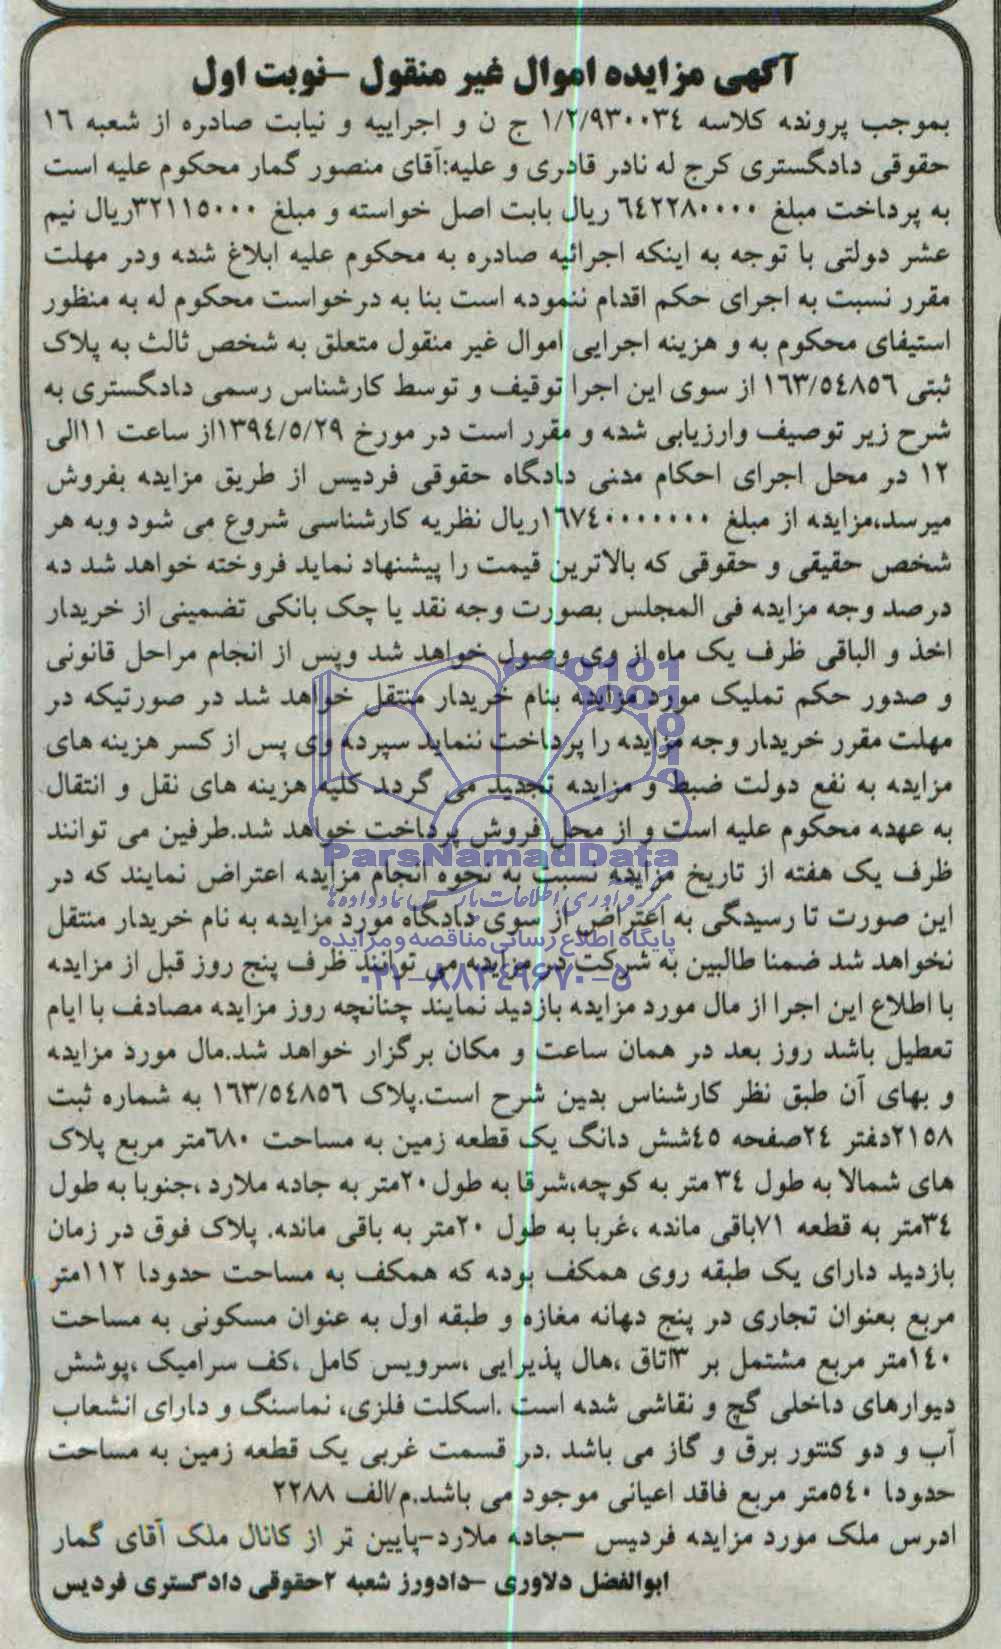 آگهی مزایده اموال غیر منقول -نوبت اول
بموجب پرونده کلاسه ۱/۲/۹۳۰۰۳٤ ج ن و اجراییه و نیابت صادره از شعبه ۱٦
حقوقی دادگستری کرج له نادر قادری و علیه:آقای منصور گمار محکوم علیه است
به پرداخت مبلغ ٦٤۲۲۸۰۰۰۰ ریال بابت اصل خواسته و مبلغ ۳۲۱۱۵۰۰۰ریال نیم
عشر دولتی با توجه به اینکه اجرائیه صادره به محکوم علیه ابلاغ شده ودر مهلت
مقرر نسبت به اجرای حکم اقدام ننموده است بنا به درخواست محکوم له به منظور
استیفای محکوم به و هزینه اجرایی اموال غیر منقول متعلق به شخص ثالث به پلاک
ثبتی ۱٦۳/۵٤۸۵٦ از سوی این اجرا توقیف و توسط کارشناس رسمی دادگستری به
شرح زیر توصیف وارزیابی شده و مقرر است در مورخ ۱۳۹٤/۵/۲۹از ساعت ۱۱الی
۱۲ در محل اجرای احکام مدنی دادگاه حقوقی فردیس از طریق مزایده بفروش
میرسد،مزایده از مبلغ ۱٦۷٤۰۰۰۰۰۰۰ریال نظریه کارشناسی شروع می شود وبه هر
شخص حقیقی و حقوقی که بالاترین قیمت را پیشنهاد نماید فروخته خواهد شد ده
درصد وجه مزایده فی المجلس بصورت وجه نقد یا چک بانکی تضمینی از خریدار
اخذ و الباقی ظرف یک ماه از وی وصول خواهد شد وپس از انجام مراحل قانونی
و صدور حکم تملیک مورد مزایده بنام خریدار منتقل خواهد شد در صورتیکه در
مهلت مقرر خریدار وجه مزایده را پرداخت ننماید سپرده وی پس از کسر هزینه های
مزایده به نفع دولت ضبط و مزایده تجدید می گردد کلیه هزینه های نقل و انتقال
به عهده محکوم علیه است و از محل فروش پرداخت خواهد شد.طرفین می توانند
ظرف یک هفته از تاریخ مزایده نسبت به نحوه انجام مزایده اعتراض نمایند که در
این صورت تا رسیدگی به اعتراض از سوی دادگاه مورد مزایده به نام خریدار منتقل
نخواهد شد ضمنا طالبین به شرکت در مزایده می توانند ظرف پنج روز قبل از مزایده
با اطلاع این اجرا از مال مورد مزایده بازدید نمایند چنانچه روز مزایده مصادف با ایام
تعطیل باشد روز بعد در همان ساعت و مکان برگزار خواهد شد.مال مورد مزایده
و بهای آن طبق نظر کارشناس بدین شرح است.پلاک ۱٦۳/۵٤۸۵٦ به شماره ثبت
۲۱۵۸دفتر ۲٤صفحه ٤۵شش دانگ یک قطعه زمین به مساحت ٦۸۰متر مربع پلاک
های شمالا به طول ۳٤ متر به کوچه،شرقا به طول ۲۰متر به جاده ملارد ،جنوبا به طول
۳٤متر به قطعه ۷۱باقی مانده ،غربا به طول ۲۰متر به باقی مانده. پلاک فوق در زمان
بازدید دارای یک طبقه روی همکف بوده که همکف به مساحت حدودا ۱۱۲متر
مربع بعنوان تجاری در پنج دهانه مغازه و طبقه اول به عنوان مسکونی به مساحت
۱٤۰متر مربع مشتمل بر ۳اتاق ،هال پذیرایی ،سرویس کامل ،کف سرامیک ،پوشش
دیوارهای داخلی گچ و نقاشی شده است .اسکلت فلزی، نماسنگ و دارای انشعاب
آب و دو کنتور برق و گاز می باشد .در قسمت غربی یک قطعه زمین به مساحت
حدودا ۵٤۰متر مربع فاقد اعیانی موجود می باشد.م/الف ۲۲۸۸
ادرس ملک مورد مزایده فردیس -جاده ملارد-پایین تر از کانال ملک آقای گمار
ابوالفضل دلاوری -دادورز شعبه ۲حقوقی دادگستری فردیس
ParsNamadData
مرکز فرآوری اطلاعات پارس نماد داده ها
پایگاه اطلاع رسانی مناقصه و مزایده
۰۲۱-۸۸۳۴۹۶۷۰-۵